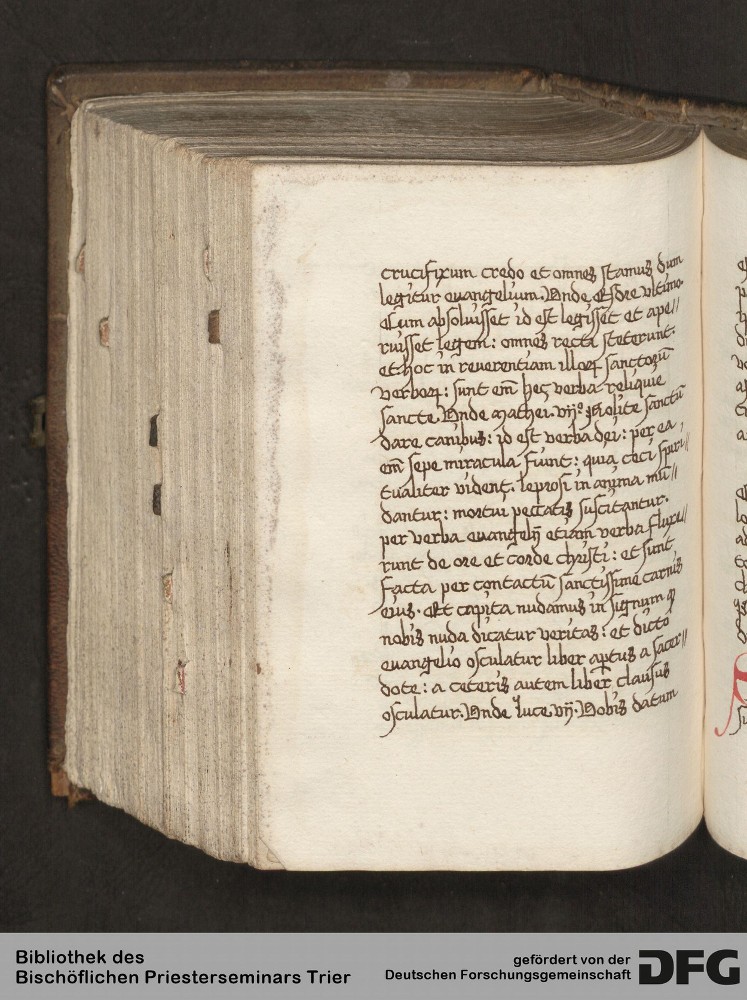 crucifixum credo et omnes stamus dum
legitur euangelium. Unde Esdre vltimo.
Cum absoluisset id est legisset et ape//
ruisset legem: omnes recta steterunt.
et hoc in reuerentiam illoꝝ sanctorū
verboꝝ: sunt em̄ hec verba reliquie
sancte. Unde Mathei. vijº. Nolite sanctū
dare canibus: id est verba dei: per ea
em̄ sepe miracula fiunt: quia ceci spiri//
tualiter vident. leprosi in anima mū//
dantur: mortui peccatis suscitantur.
per verba euangelij etiam verba fluxe//
runt de ore et corde christi: et sunt
facta per contactū sanctissime carnis
eius. Et capita nudamus in signum ꝙ
nobis nuda dicatur veritas: et dicto
euangelio osculatur liber aptus a sacer//
dote: a ceteris autem liber clausus
osculatur. Unde luce vij. Uobis datum
Bibliothek des
Bischöflichen Priesterseminars Trier
gefördert von der
Deutschen Forschungsgemeinschaft DFG